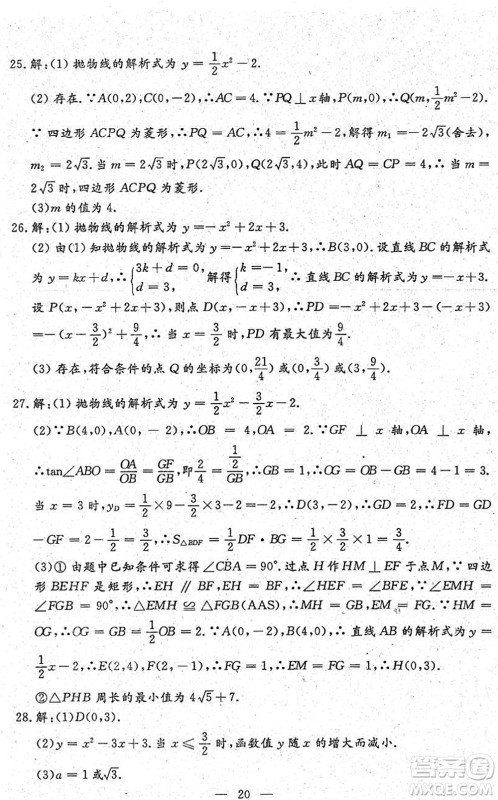 25.解:(1) 抛物线的解析式为 y=1/2x²-2.
(2) 存在.∵A(0,2),C(0,-2),∴CA=4.∵PQ⊥x轴,P(m,0),∴Q(m,1/2m²-2).
∵ 四边形 ACPQ 为菱形,∴PQ=AC,∴4=1/2m²-2,解得 m₁=-2√3(舍去),
m₂=2√3.当 m=2√3 时,P(2√3,0),Q(2√3,4),此时 AQ=CP=4,∴当 m=
2√3 时,四边形 ACPQ 为菱形.
(3)m 的值为 4.
26.解:(1) 抛物线的解析式为 y=-x²+2x+3.
(2) 由(1) 知抛物线的解析式为 y=-x²+2x+3,∴B(3,0).设直线 BC 的解析式
为 y=kx+d,∴{3k+d=0, d=3, 解得{k=-1, d=3, ∴ 直线 BC 的解析式为 y=-x+3.
设 P(x,-x²+2x+3),则点 D(x,-x+3),∴PD=-x²+2x+3-(-x+3)
=-(x-3/2)²+9/4,∴ 当 x=3/2 时,PD 有最大值为 9/4.
(3) 存在,符合条件的点 Q 的坐标为(0,21/4) 或(0,3/4) 或(3,9/4).
27.解:(1) 抛物线的解析式为 y=1/2x²-3/2x-2.
(2)∵B(4,0),A(0,-2),∴OB=4,OA=2.∵GF⊥x轴,OA⊥x轴,
∴tan∠ABO=OA/OB=GF/GB,即 2/4=1/2/GB,∴GB=1,∴OG=OB-GB=4-1=3.
当 x=3 时,y_D=1/2×9-3/2×3-2=-2,∴D(3,-2),即 GD=2,∴FD=GD
-GF=2-1/2=3/2,∴S△BDF=1/2DF·BG=1/2×3/2×1=3/4.
(3)① 由题中已知条件可求得∠CBA=90°.过点 H 作 HM⊥EF 于点 M,∵ 四边
形 BEHF 是矩形,∴EH∥BF,EH=BF,∴∠HEF=∠BFE,∵∠EMH=
∠FGB=90°,∴△EMH≌△FGB(AAS),∴MH=GB,EM=FG.∵HM=
OG,∴OG=GB=1/2OB=2.∵A(0,-2),B(4,0),∴ 直线 AB 的解析式为 y=
1/2x-2,∴E(2,4),F(2,-1),∴FG=1,∴EM=FG=1,∴H(0,3).
②△PHB 周长的最小值为 4√5+7.
28.解:(1)D(0,3).
(2)y=x²-3x+3,当 x≤3/2 时,函数值 y 随 x 的增大而减小.
(3)a=1 或√3.
— 20 —